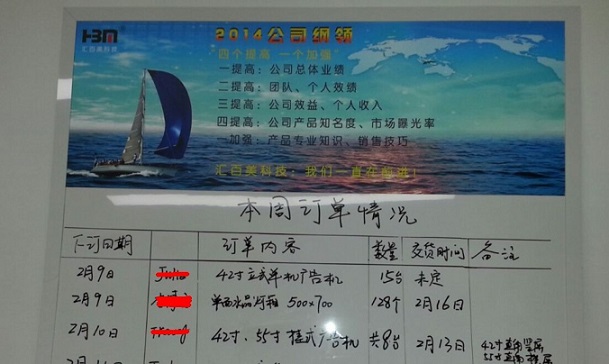 HBM
汇百美科技
2014公司纲领
四个提高 一个加强:
一提高: 公司总体业绩
二提高: 团队、个人效绩
三提高: 公司效益、个人收入
四提高: 公司产品知名度、市场曝光率
一加强: 产品专业知识、销售技巧
汇百美科技: 我们一直在前进!
本周订单情况
下订日期 订单内容 数量 交货时间 备注
2月9日 42寸立式单机广告机 15台 未定
2月9日 单面水晶灯箱 500×700 128个 2月16日
2月10日 42寸、55寸挂式广告机 共8台 2月13日